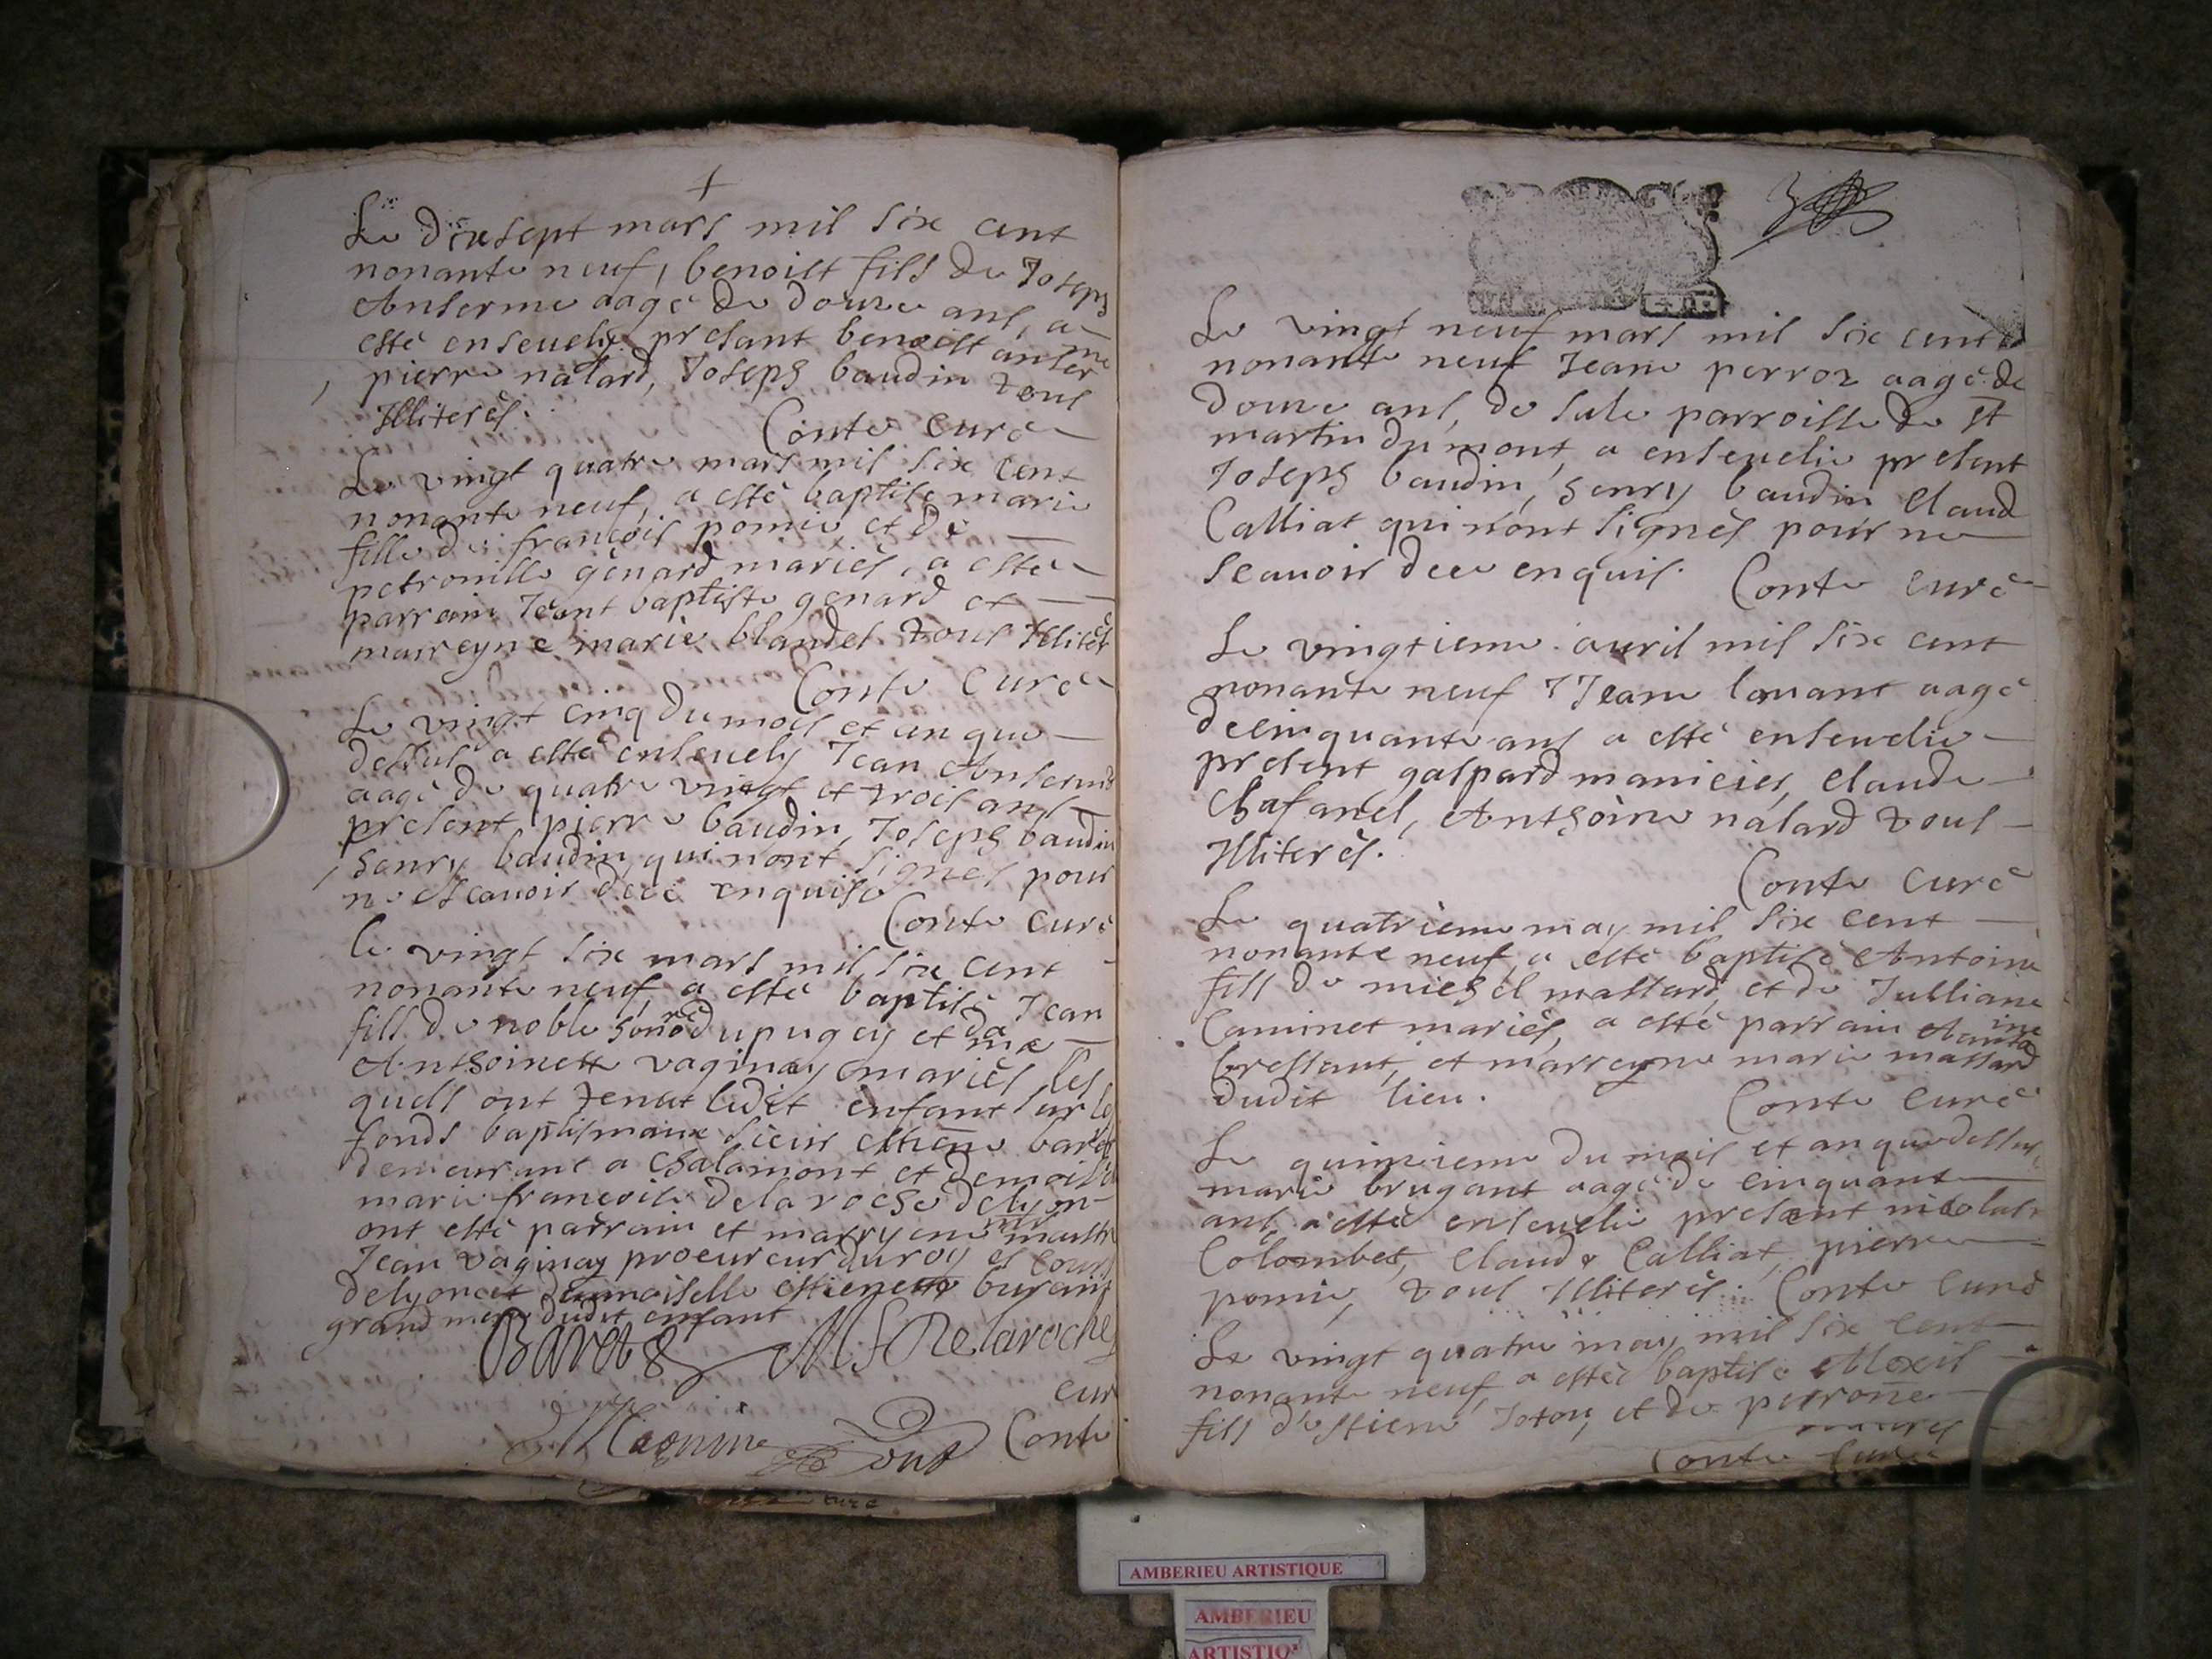 Le dixsept mars mil six cent
nonante neuf, benoist fils de Joseph
Anserme aagé de douze ans, a
esté enseuely presant benoist anserme
pierre nalard, Joseph baudin tous
Illiterés.
Conte curé
Le vingt quatre mars mil six cent
nonante neuf, a esté baptisé marie
fille de françois pomie et de
petronille genard mariés, a esté
parrain Jeant baptiste genard et
marreyne marie blandel tous Illités
Conte Curé
Le vingt cinq du mois et an que
dessus a esté enseuely Jean Anserme
aagé de quatre vingt et trois ans
present pierre baudin, Joseph baudin
henry baudin qui nont signés pour
ne scauoir de ce enquise
Conte curé
le vingt six mars mil six cent
nonante neuf, a esté baptisé Jean
fils de noble honoré dupugey et da
me
Anthoinette vaginay mariés, les
quels ont tenut ledit enfant sur le
fonds baptismaux sieur estiene baret
demeurant a chalamont et demoisle
marie francoise delaroche delyon
ont esté parrain et marryene maistre
Jean vaginay procureur du roy es cours
delyon et demoiselle estienette burain
grand mere dudit enfant
Baret MF Delaroche
cur
Conte
Le vingt neuf mars mil six cent
nonante neuf Jeane perroz aagé de
douze ans, de sule parroisse de st
martin du mont, a enseuelie present
Joseph baudin, henry baudin Claud
Calliat qui nont signés pour ne
scauoir de ce enquis. Conte curé
Le vingtieme auril mil six cent
nonante neuf Jeane lauant aagé
de cinquante ans a esté enseuelie
present gaspard manicier, claude
Chafanel, Anthoine nalard tous
Illiterés.
Conte curé
Le quatrieme may mil six cent
nonante neuf, a esté baptisé Antoine
fils de michel massard, et de Julliane
Caminet mariés, a esté parrain Antoine
bressant, et marreyne marie massard
dudit lieu. Conte Curé
Le quinzieme du mois et an que dessus
marie brugant aagé de cinquante
ans, a esté enseuelie present nicolas
Colombet, Claude Calliat, pierre
pomie, tous Illiterés. Conte Curé
Le vingt quatre may mil six cent
nonante neuf, a estéé baptisé Alexis
fils destiene Joton, et de perrone
mariés
Conte Curé
AMBERIEU ARTISTIQUE
AMBERIEU
ARTISTIQ